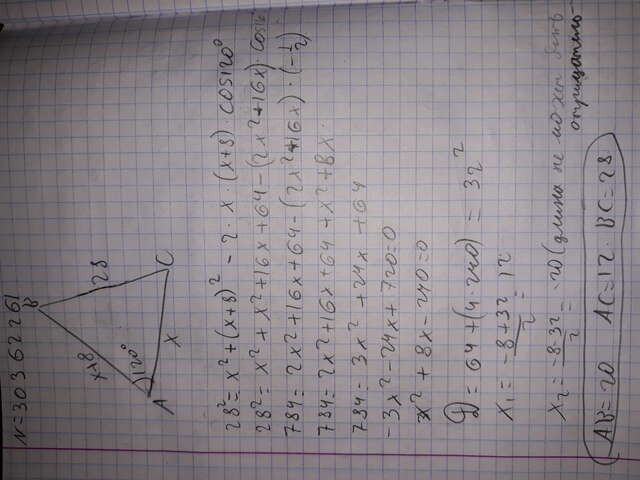 N=30362261
B
x+8
28
120°
A
x
C
28² = x² + (x+8)² - 2 · x · (x+8) · cos120°
28² = x² + x² + 16x + 64 - (2x² + 16x) · cos120°
784 = 2x² + 16x + 64 - (2x² + 16x) · (-1/2)
784 = 2x² + 16x + 64 + x² + 8x.
784 = 3x² + 24x + 64
-3x² - 24x + 720 = 0
x² + 8x - 240 = 0
D = 64 + (4 · 240) = 32²
x₁ = (-8 + 32)/2 = 12
x₂ = (-8 - 32)/2 = -20 (длина не может быть
отрицательно-
AB = 20 AC = 12. BC = 28